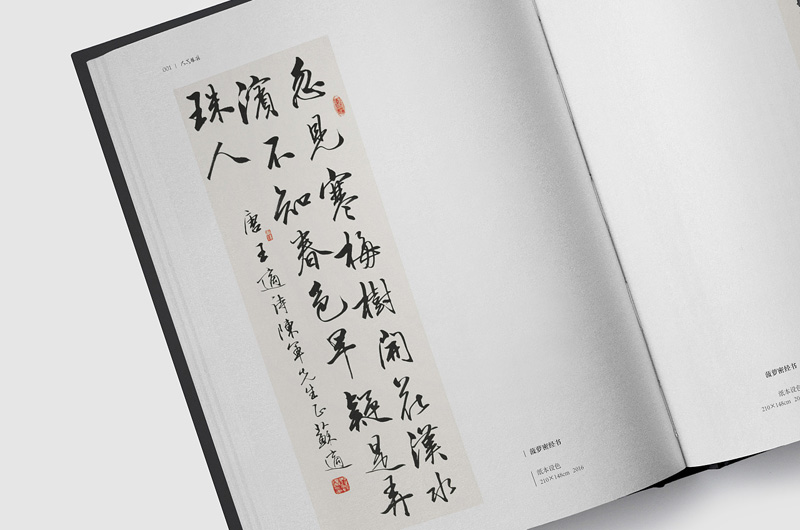 忽見寒梅樹開花漢水
濱不知春色早疑是弄
珠人
唐王適詩陳軍先生正蘇適
菠萝密经书
纸本设色
210×148cm 2016
菠萝密经书
纸本设色
210×148cm 20